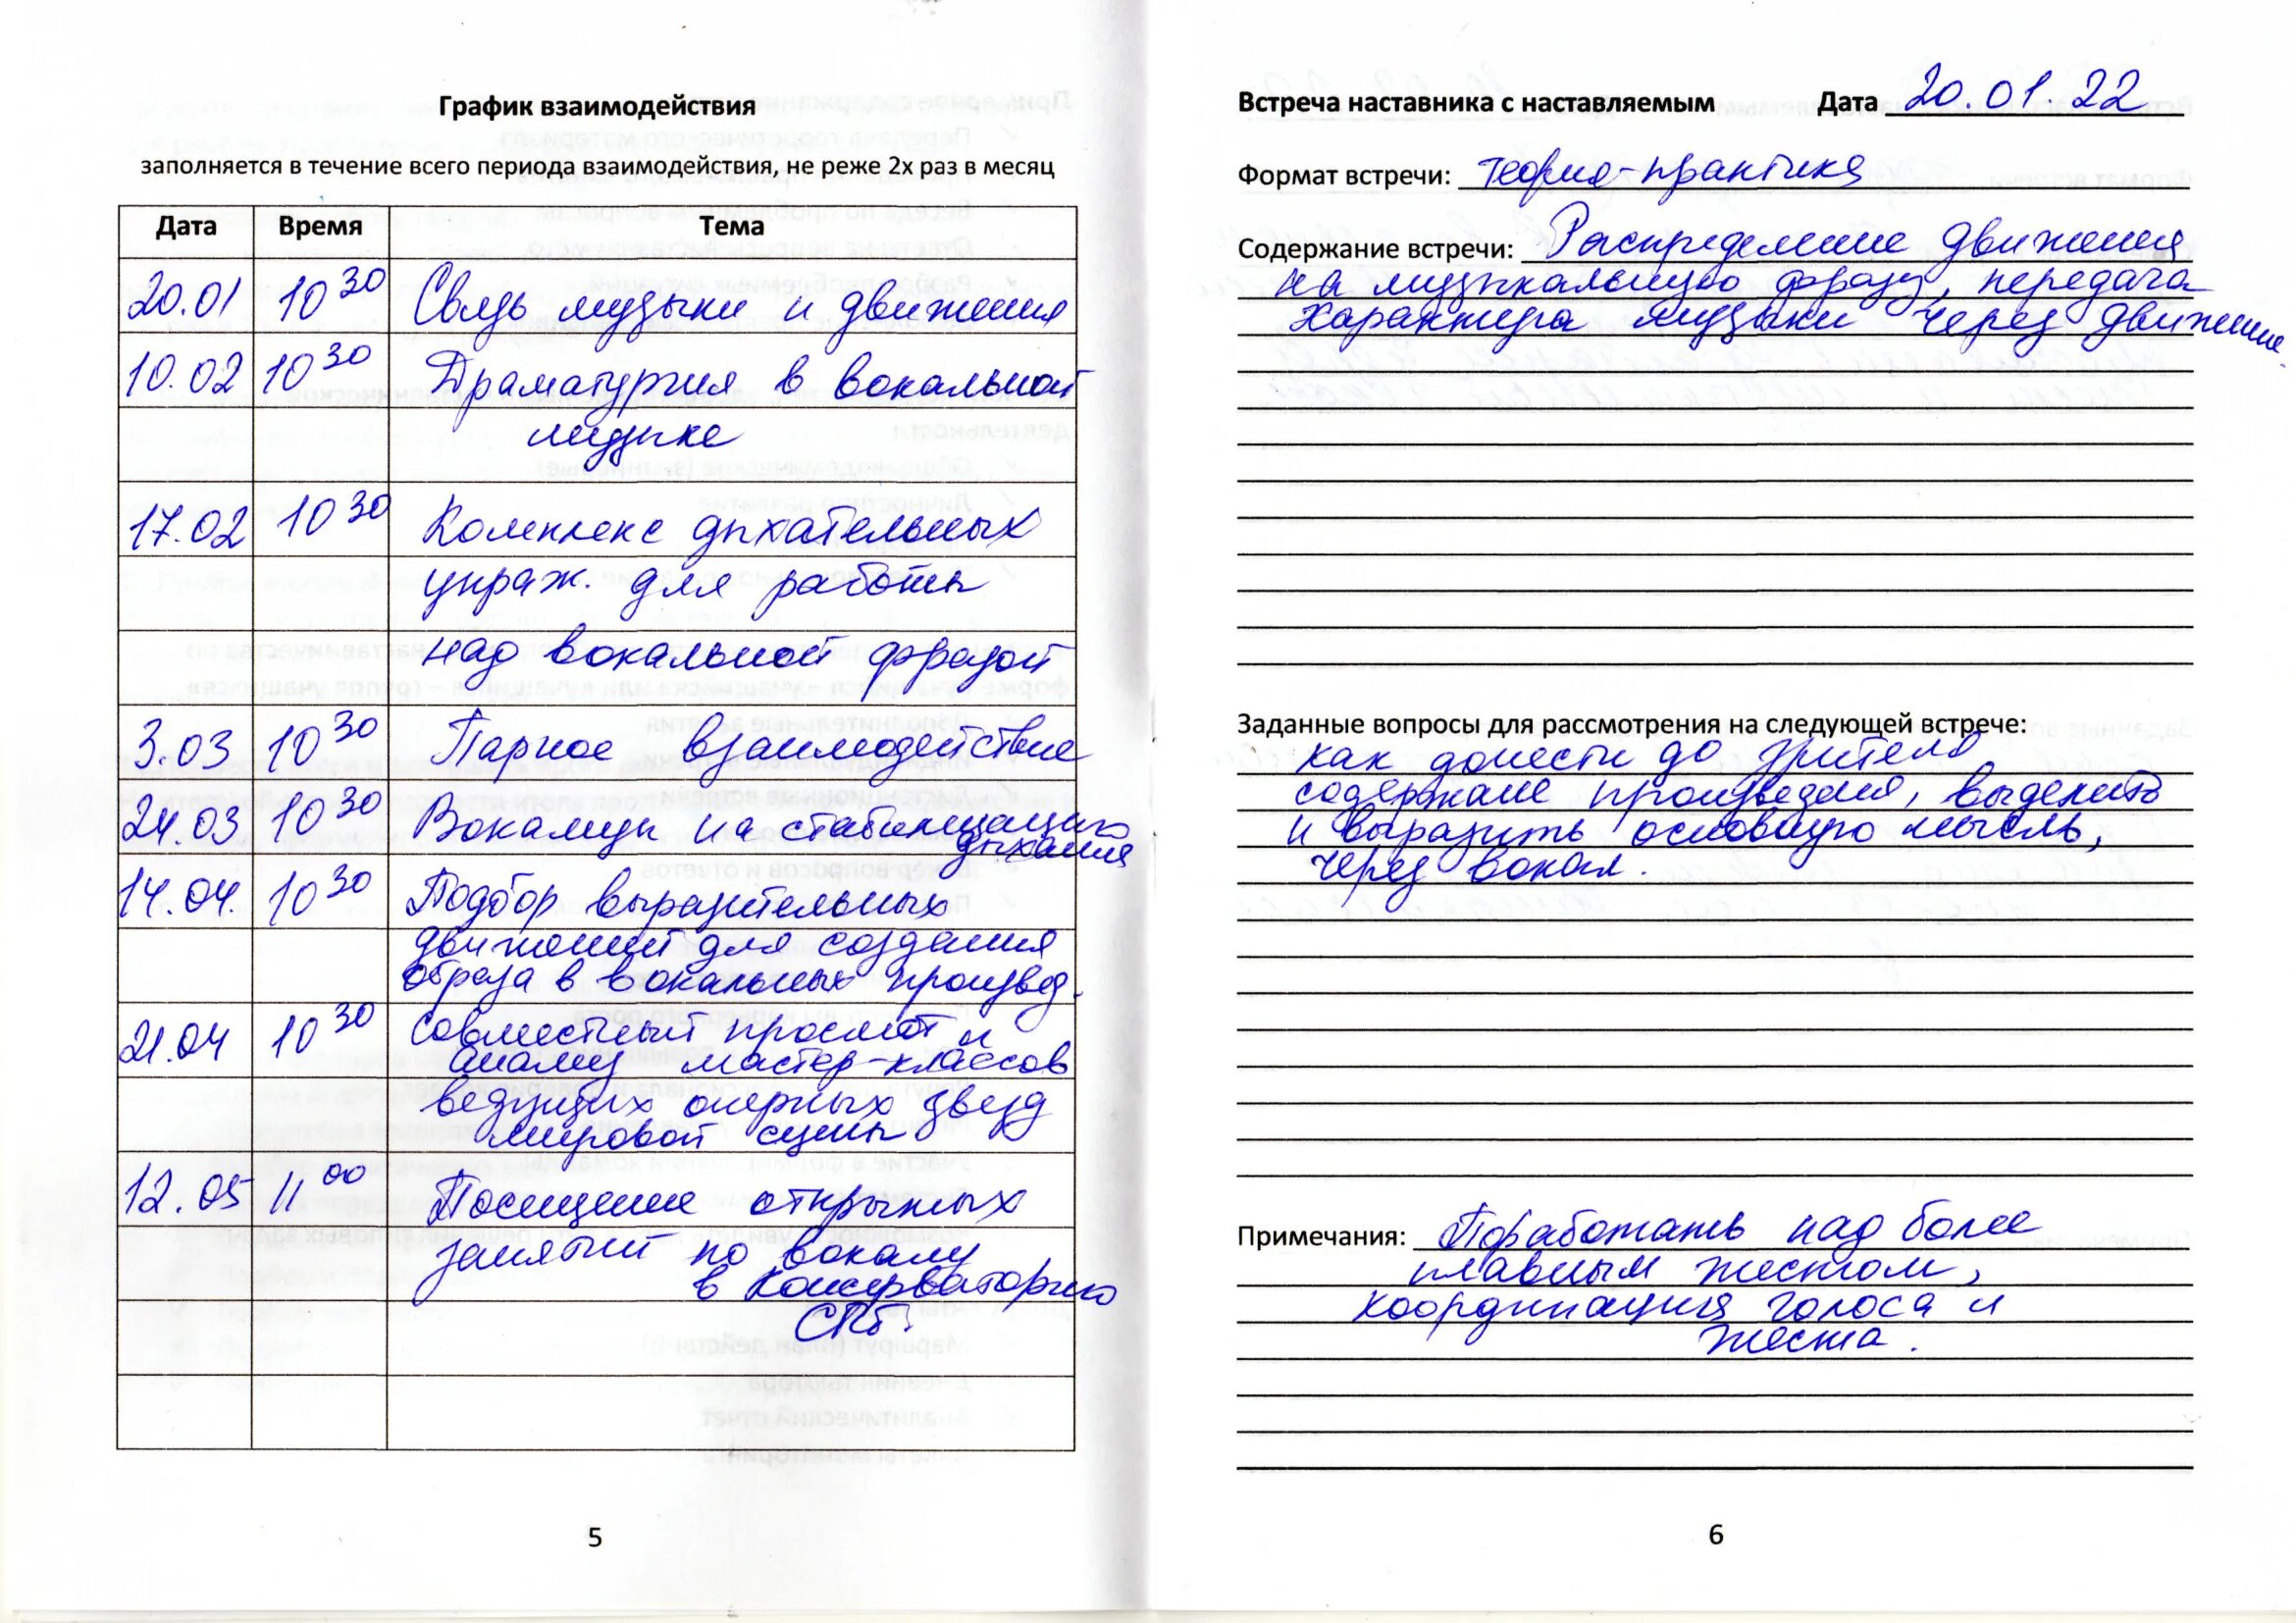 График взаимодействия
заполняется в течение всего периода взаимодействия, не реже 2х раз в месяц
Дата Время Тема
20.01 10 30 Связь музыки и движения
10.02 10 30 Драматургия в вокальной
музыке
17.02 10 30 Комплекс дыхательных
упраж. для работы
над вокальной фразой
3.03 10 30 Парное взаимодействие
24.03 10 30 Вокализы на стабилизацию
дыхания
14.04. 10 30 Подбор выразительных
движений для создания
образа в вокальных произвед.
21.04 10 30 Совместный просмот и
анализ мастер-классов
ведущих оперных звезд
мировой сцены
12.05 11 00 Посещение открытых
занятий по вокалу
в Консерваторию
СПб.
5
Встреча наставника с наставляемым Дата 20.01.22
Формат встречи: теория-практика
Содержание встречи: Распределение движения
на музыкальную фразу, передача
характера музыки через движение.
Заданные вопросы для рассмотрения на следующей встрече:
как донести до зрителя
содержание произведения, выделить
и выразить основную мысль,
через вокал.
Примечания: Поработать над более
плавным жестом,
координация голоса и
жеста.
6